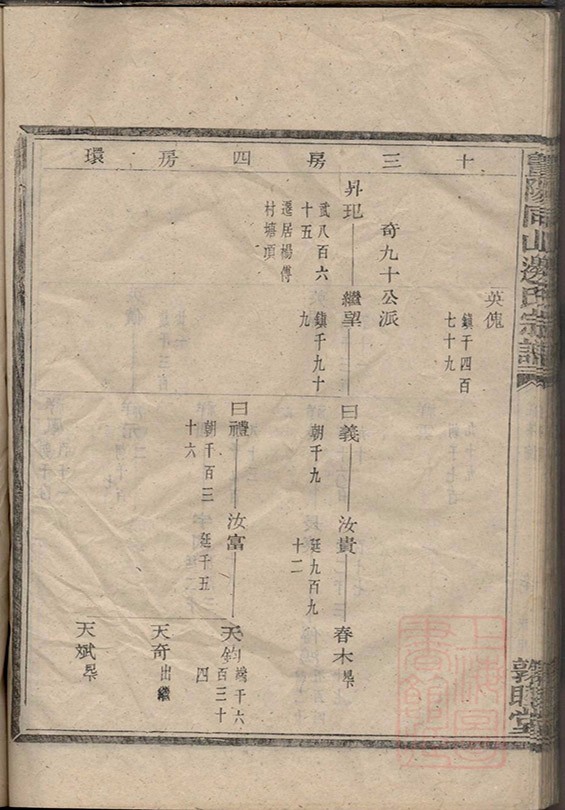 暨陽同山邊氏宗譜
敦睦堂
十三房四房環
英傀
鎮千四百
七十九
奇九十公派
昇玘
武八百六
十五
遷居楊傅
村塘頂
繼望
鎮千九十
九
曰義
朝千九
汝貴
廷九百九
十二
春木
曰禮
朝千百三
十六
汝富
廷千五
天鈞
百三十
四
天奇出繼
天斌
上海圖書館藏